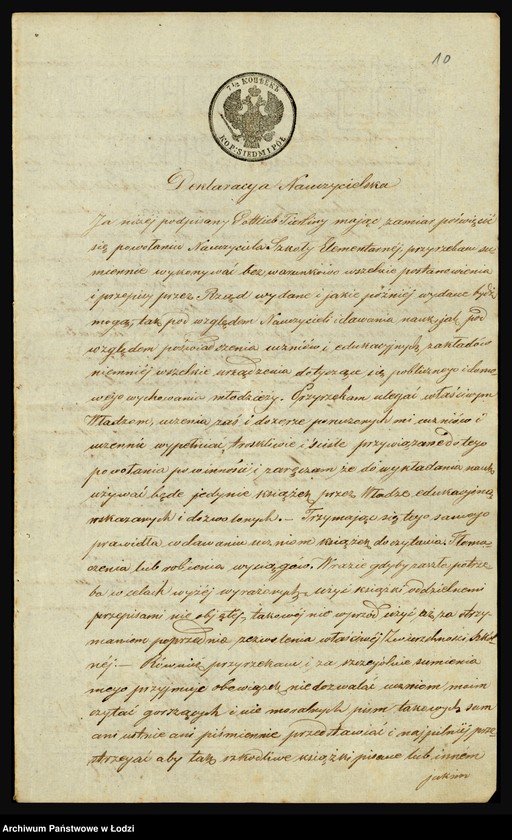 10
7½ КОПѢЕКЪ
KOP: SIEDM I PÓŁ
Deklaracya Nauczycielska
Ja niżej podpisany Gottlieb mając zamiar poświęcić
się powołaniu Nauczyciela Szkoły Elementarnej, przyrzekam su
miennie wykonywać bezwarunkowo wszelkie postanowienia
i przepisy przez Rząd wydane i jakie później wydane być
mogą, tak pod względem Nauczycieli i dawania nauk jak pod
względem uczniów i edukacyjnych zakładów
niemniej wszelkie urządzenia dotyczące się publicznego i domo
wego wychowania młodzieży. Przyrzekam ulegać właściwym
Władzom, uczenia zaś i dozorze poruczonych mi uczniów i
uczennic wypełniać troskliwie i ściśle przywiązane do tego
powołania powinności i zaręczam że do wykładania nauk
używać będę jedynie książek przez Władze edukacyjną
wskazanych i dozwolonych. — Trzymając się tego samego
prawidła w dawaniu uczniom książek do czytania, Tłoma-
czenia lub robienia wyciągów. W razie gdyby zaszła potrze
ba w celach wyżej wyrażonych, użyć książki oddzielnemi
przepisami nie objętej, takowej nie wprzód użyć aż za otrzy
maniem poprzednio zezwolenia właściwej Zwierzchności Szkol
nej. — Również przyrzekam i za szczególnie sumienia
mego przyjmuję obowiązek niedozwalać uczniom moim
czytać gorszących i nie moralnych pism takowych sam
ani ustnie ani piśmiennie przedstawiać i najpilniej prze
strzegać aby tak szkodliwe książki pisane lub innem
jakim
Archiwum Państwowe w Łodzi